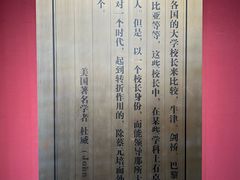 各国的大学校长来比较，牛津、剑桥、巴黎
比亚等等，这些校长中，在某些学科上有
人，但是，以一个校长身份，而能领导那所
对一个时代，起到转折作用的，除蔡元培而
个。
美国著名学者 杜威